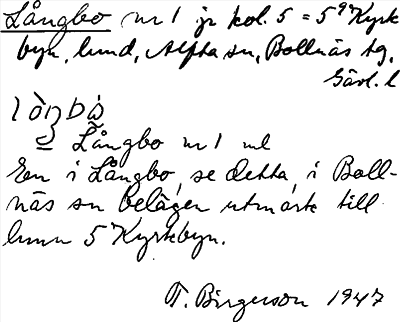 Långbo nr 1 jr kol. 5 = 5 Kyrk
byn, lund, Alfta sn, Bollnäs tg,
Gävl. l
Långbo nr 1 ml
En i Långbo, se detta, i Boll-
näs sn belägen utmark till
hmn 5 Kyrkbyn.
T. Birgerson 1947